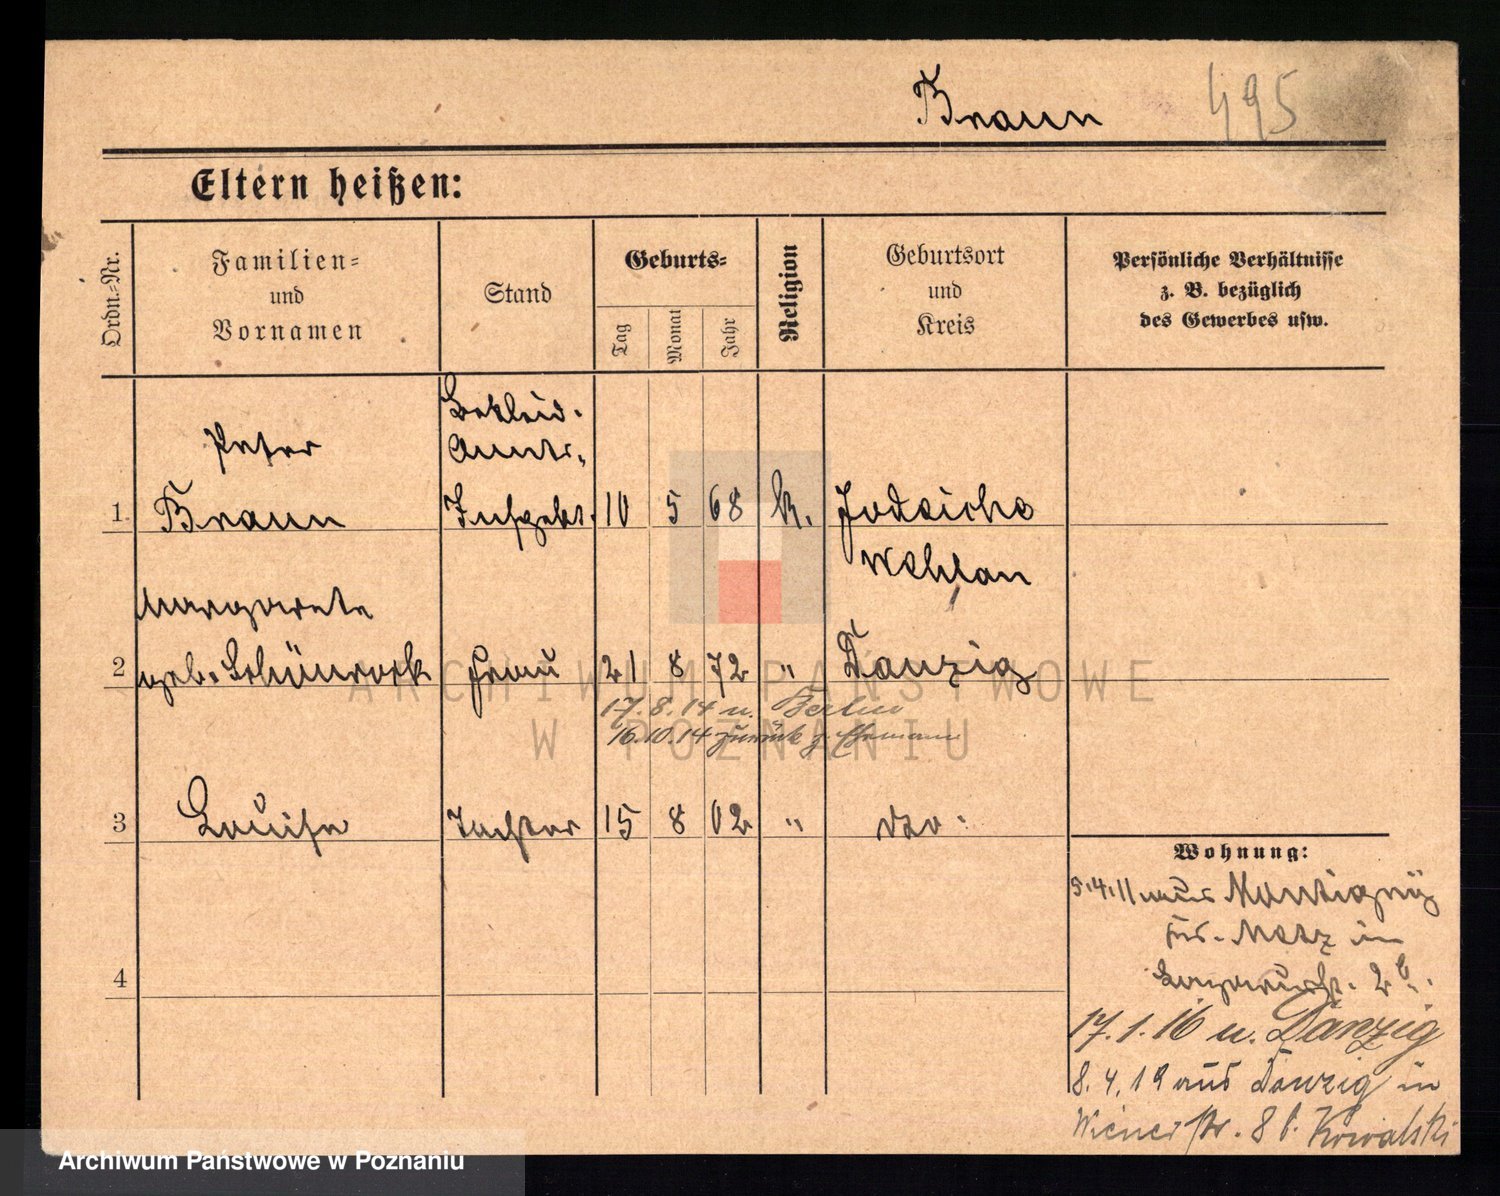 Braun 495
Eltern heißen:
Ordn.-Nr.
Familien- und Vornamen
Stand
Geburts-
Tag
Monat
Jahr
Religion
Geburtsort und Kreis
Persönliche Verhältnisse
z. B. bezüglich
des Gewerbes usw.
Bekleid.
Peter Amts-
1 Braun 10 5 68 k.
Wehlau
Margarete
2 geb. Schönrock Frau 21 8 72 " Danzig
17.8.14 n. Berlin
16.10.14 zurück z. Ehemann
3 Louise Tochter 15 8 02 " dto.
4
Wohnung:
5.4.11 aus Montigny
Metz in
2b.
17.1.16 n. Danzig
8.4.19 aus Danzig in
Wienerstr. 8 b. Kowalski
ARCHIWUM PAŃSTWOWE
W POZNANIU
Archiwum Państwowe w Poznaniu